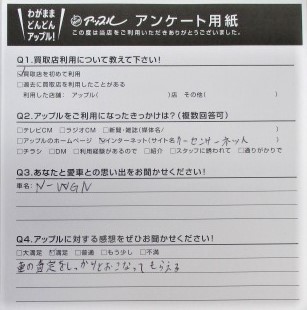 わがまま
どんどん
アップル!
アップル アンケート用紙
この度は当店をご利用いただきありがとうございました。
Q1.買取店利用について教えて下さい!
☑買取店を初めて利用
□過去に買取店を利用したことがある
利用した店舗: アップル( )店 その他( )
Q2.アップルをご利用になったきっかけは?(複数回答可)
□テレビCM □ラジオCM □新聞・雑誌(媒体名/ )
□アップルのホームページ ☑インターネット(サイト名/カーセンサーネット)
□チラシ □DM □利用経験があるので □紹介 □スタッフに誘われて □通りがかりで
Q3.あなたと愛車との思い出をお聞かせください!
車名: N-WGN
Q4.アップルに対する感想をぜひお聞かせください!
□大満足 ☑満足 □普通 □もう少し □不満
車の査定をしっかりとおこなってもらえる